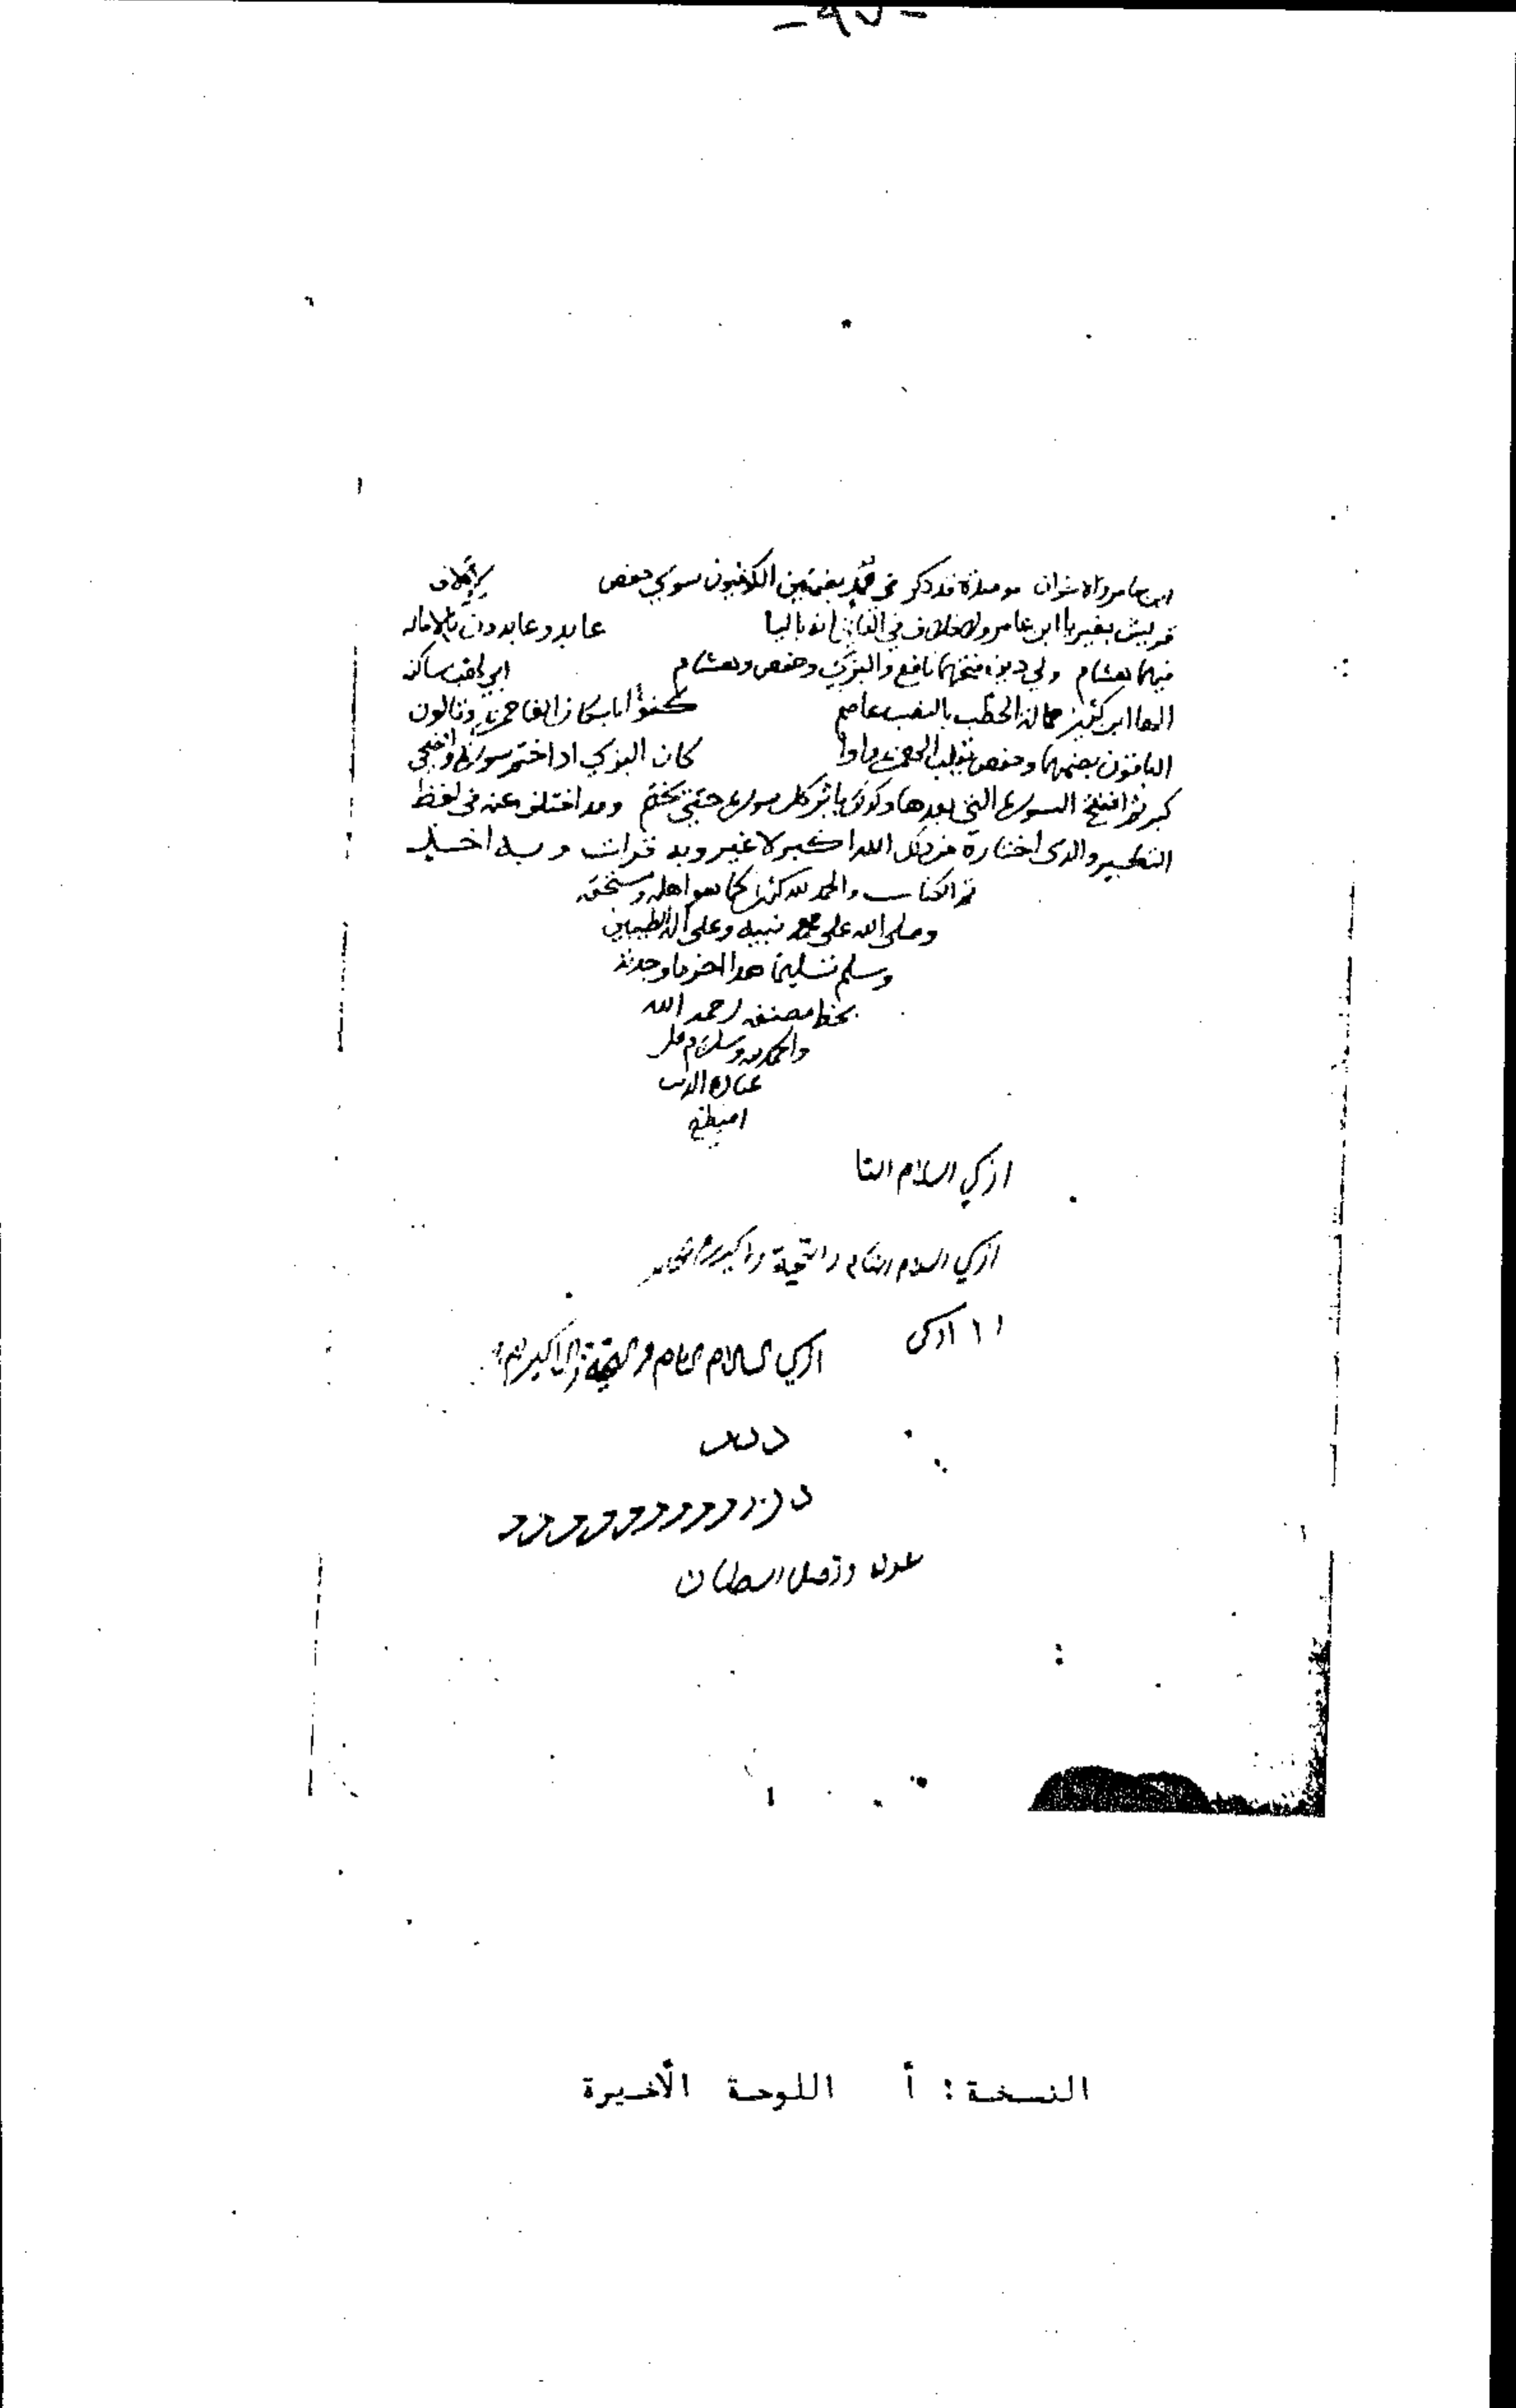 - ٩٧ -
ابن عامر والاخوان موصدة قد ذكر في عمد بضمتين الكوفيون سوى حفص لايلاف
قريش بغير يا ابن عامر ولا خلاف في الثاني انه باليا عابد وعابدون بالاماله
فيهما هشام ولي دين فتحها نافع والبزي وحفص وهشام ابي لهب ساكنه
الها ابن كثير حمالة الحطب بالنصب عاصم كفوا باسكان الفا حمزة
الباقون بضمهما وحفص الهمزة واوا كان البزي اذا ختم سورة والضحى
كبر ثم افتتح السورة التي بعدها وكذلك باثر كل سورة حتى يختم وقد اختلف عنه في لفظ
التكبير والذي اختاره من ذلك الله اكبر لا غير وبه قرات وبه اخذ
تم الكتاب والحمد لله كثيرا كما هو اهله ومستحقه
وصلى الله على محمد نبيه وعلى اله الطيبين
وسلم تسليما هذا اخر ما وجدته
بخط مصنفه رحمه الله
والحمد لله وسلام على
عباده الذين
اصطفى
ازكي السلام التا
ازكي السلام التام والتحية
ا ا ازكى ازكي السلام التام والتحية
النسخة : أ اللوحة الأخيرة